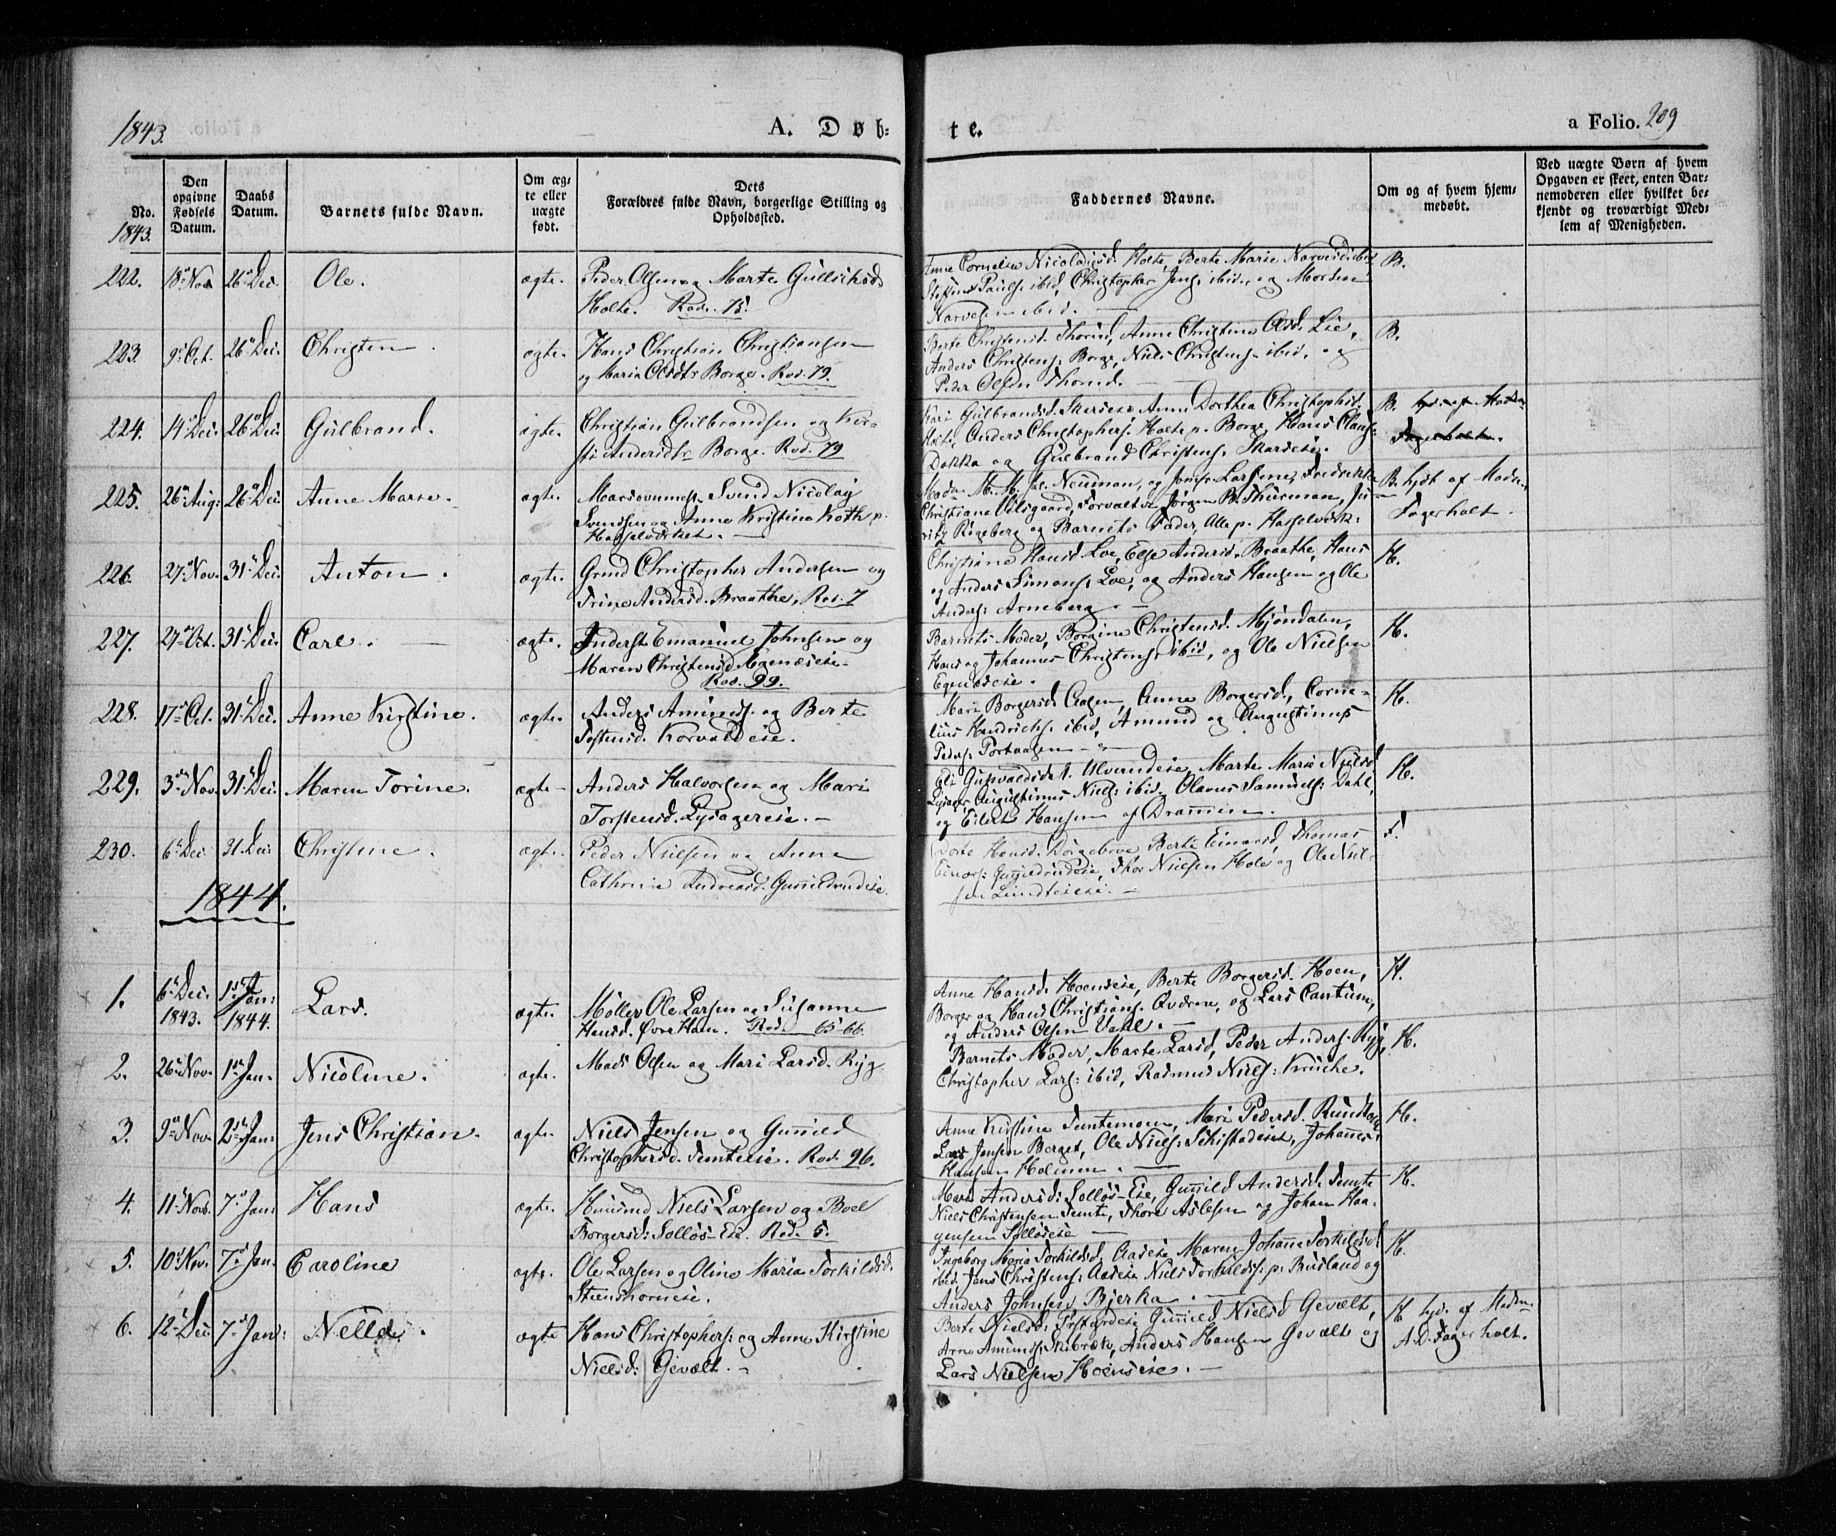 1843.
A. Døb-
te.
a Folio. 209
No.
1843.
Den opgivne Fødsels Datum.
Daabs Datum.
Barnets fulde Navn.
Om ægte eller uægte født.
Dets
Forældres fulde Navn, borgerlige Stilling og
Opholdssted.
Faddernes Navne.
Om og af hvem hjemmedøbt.
Ved uægte Børn af hvem
Opgaven er skeet, enten Barnemoderen eller hvilket bekjendt og troværdigt Medlem af Menigheden.
222. 18de Nov 26de Dec. Ole. ægte. Peder Olsen og Marte Gullichsd
Holte. Rod. 15.
Anne Cornelia Nicolaisd. Holte, Berte Marie
Pauls: ibid, Christopher Jens: ibid, og Morten
Narvesen ibid.
B.
223. 9de Oct. 26de Dec. Christen. ægte. Hans Christian Christiansen
og Maria Olsdtr Borge. Rod. 19.
Berte Christensd. Thorud, Anne Christine Olsd. Lie,
Anders Christens: Borge, Niels Christens: ibid. og
Peder Olsen Thorud.
B.
224. 14de Dec. 26de Dec. Gulbrand. ægte. Christian Gulbrandsen og
Andersdtr Borge. Rod. 19
Kari Gulbrandsd. Anne Dorthea Christophsd.
Holte, Anders Christophers: Holte p. Borge, Hans Claus:
Dokka og Gulbrand Christens:
B. hjd. af Madm
Fagerholt.
225. 26de Aug: 26de Dec. Anne Marie. ægte. Svend Nicolay
Svendsen og Anne Kristine Roth p.
Hasselværket.
Madm. Neuman, og Jomf: Larsine, Fredrikke
Christiane Forvalter Jørgen B. Thurman,
og Barnets Fader, Alle p. Hasselværk:
B. hjdt af Madm.
Fagerholt.
226. 27de Nov. 31de Dec. Anton. ægte. Grmd Christopher Andersen og
Trine Andersd. Braathe, Rod. 7
Christiane Hansd. Loe, Else Andersd. Braathe, Hans
og Anders Simons: Loe, og Anders Hansen og Ole
Anders: Arneberg.
H.
227. 27de Oct. 31de Dec. Carl. ægte. Inderst Emanuel Johnsen og
Maren Christensd Egenæseie.
Rod. 99.
Barnets Moder, Borgine Christensd. Mjøndalen,
Hans og Johannes Christens: ibid, og Ole Nielsen
Egenæseie.
H.
228. 17de Oct. 31de Dec. Anne Kirstine. ægte. Anders Amunds. og Berte
Tostensd. Korvaldeie.
Mari Borgersd. Aasen, Anne Borgersd, Corne-
lius Hendrichs: ibid, Amund og Augustinus
Peders: Portaasen
H.
229. 3de Nov. 31de Dec. Maren Torine. ægte Anders Halvorsen og Mari
Torstensd. Lysagereie.
Eli Gunvaldsdt. Ulverudeie, Marte Marie Nielsd
Lysager, Augustinus Niels: ibid, Olaves Samuels: Dahl,
og Eilert Hansen af Drammen.
H.
230. 6de Dec 31 Dec Christine. ægte. Peder Nielsen og Anne
Cathrine Andreasd. Gunnildrudeie.
Dorte Hansd. Berte Einarsd, Thomas
Einars: Gunnildrudeie, Thor Nielsen Hole og Ole Niel-
sen
F.
1844.
1. 6de Dec. 1843. 1ste Jan: 1844. Lars. ægte. Møller Ole Larsen og Susanne
Hansd. Øvre Hoen. Rod. 65-66.
Anne Hansd. Hoenseie, Berte Borgersd. Hoen,
Borger og Hans Christians: og Lars Cantum,
og Anders Olsen Dahl.
H.
2. 26de Nov. 1ste Jan. Nicoline. ægte. Mads Olsen og Mari Larsd. Ryg
Barnets Moder, Marte Larsd, Peder Anders: Ryg,
Christopher Lars: ibid, Rasmus Niels: Kniche.
H.
3. 9de Nov. 2den Jan: Jens Christian. ægte. Niels Jensen og Gunnild
Christophersd. Temteeie. Rod. 96.
Anne Kirstine Temtemoen, Mari Pedersd.
Lars Jensen Berget, Ole Niels: Johannes
Hansen Holmen.
H.
4. 11te Nov. 7de Jan: Hans ægte. Huusmd Niels Larsen og Boel
Borgersd: Solløs-Eie. Rod. 5.
Maria Andersd: Solløs-Eie, Gunnild Andersd. Temte
Niels Christensen Temte, Thore Aslesen og Johan Haa-
gensen Solløseie
H.
5. 10de Nov. 7de Jan. Caroline ægte. Ole Larsen og Oline Maria Torkildsd.
Steenshorneie.
Ingeborg Maria Torkildsd, Aaseie, Maren Johanne Torkildsd
ibid. Jens Christens: Aaseie Niels Torkilds: p: Buskand og
Anders Johnsen Bjerka.
H.
6. 12te Dec 7de Jan: ægte Hans Christophers: og Anne Kirstine
Nielsd: Gevælt.
Berte Nielsd: Gunnild Nielsd Gevælt,
Arne Amunds: Skibræk, Anders Hansen Gevælt og
Lars Nielsen Hoenseie.
H hjd. af Madm.
A.D. Fagerholt.